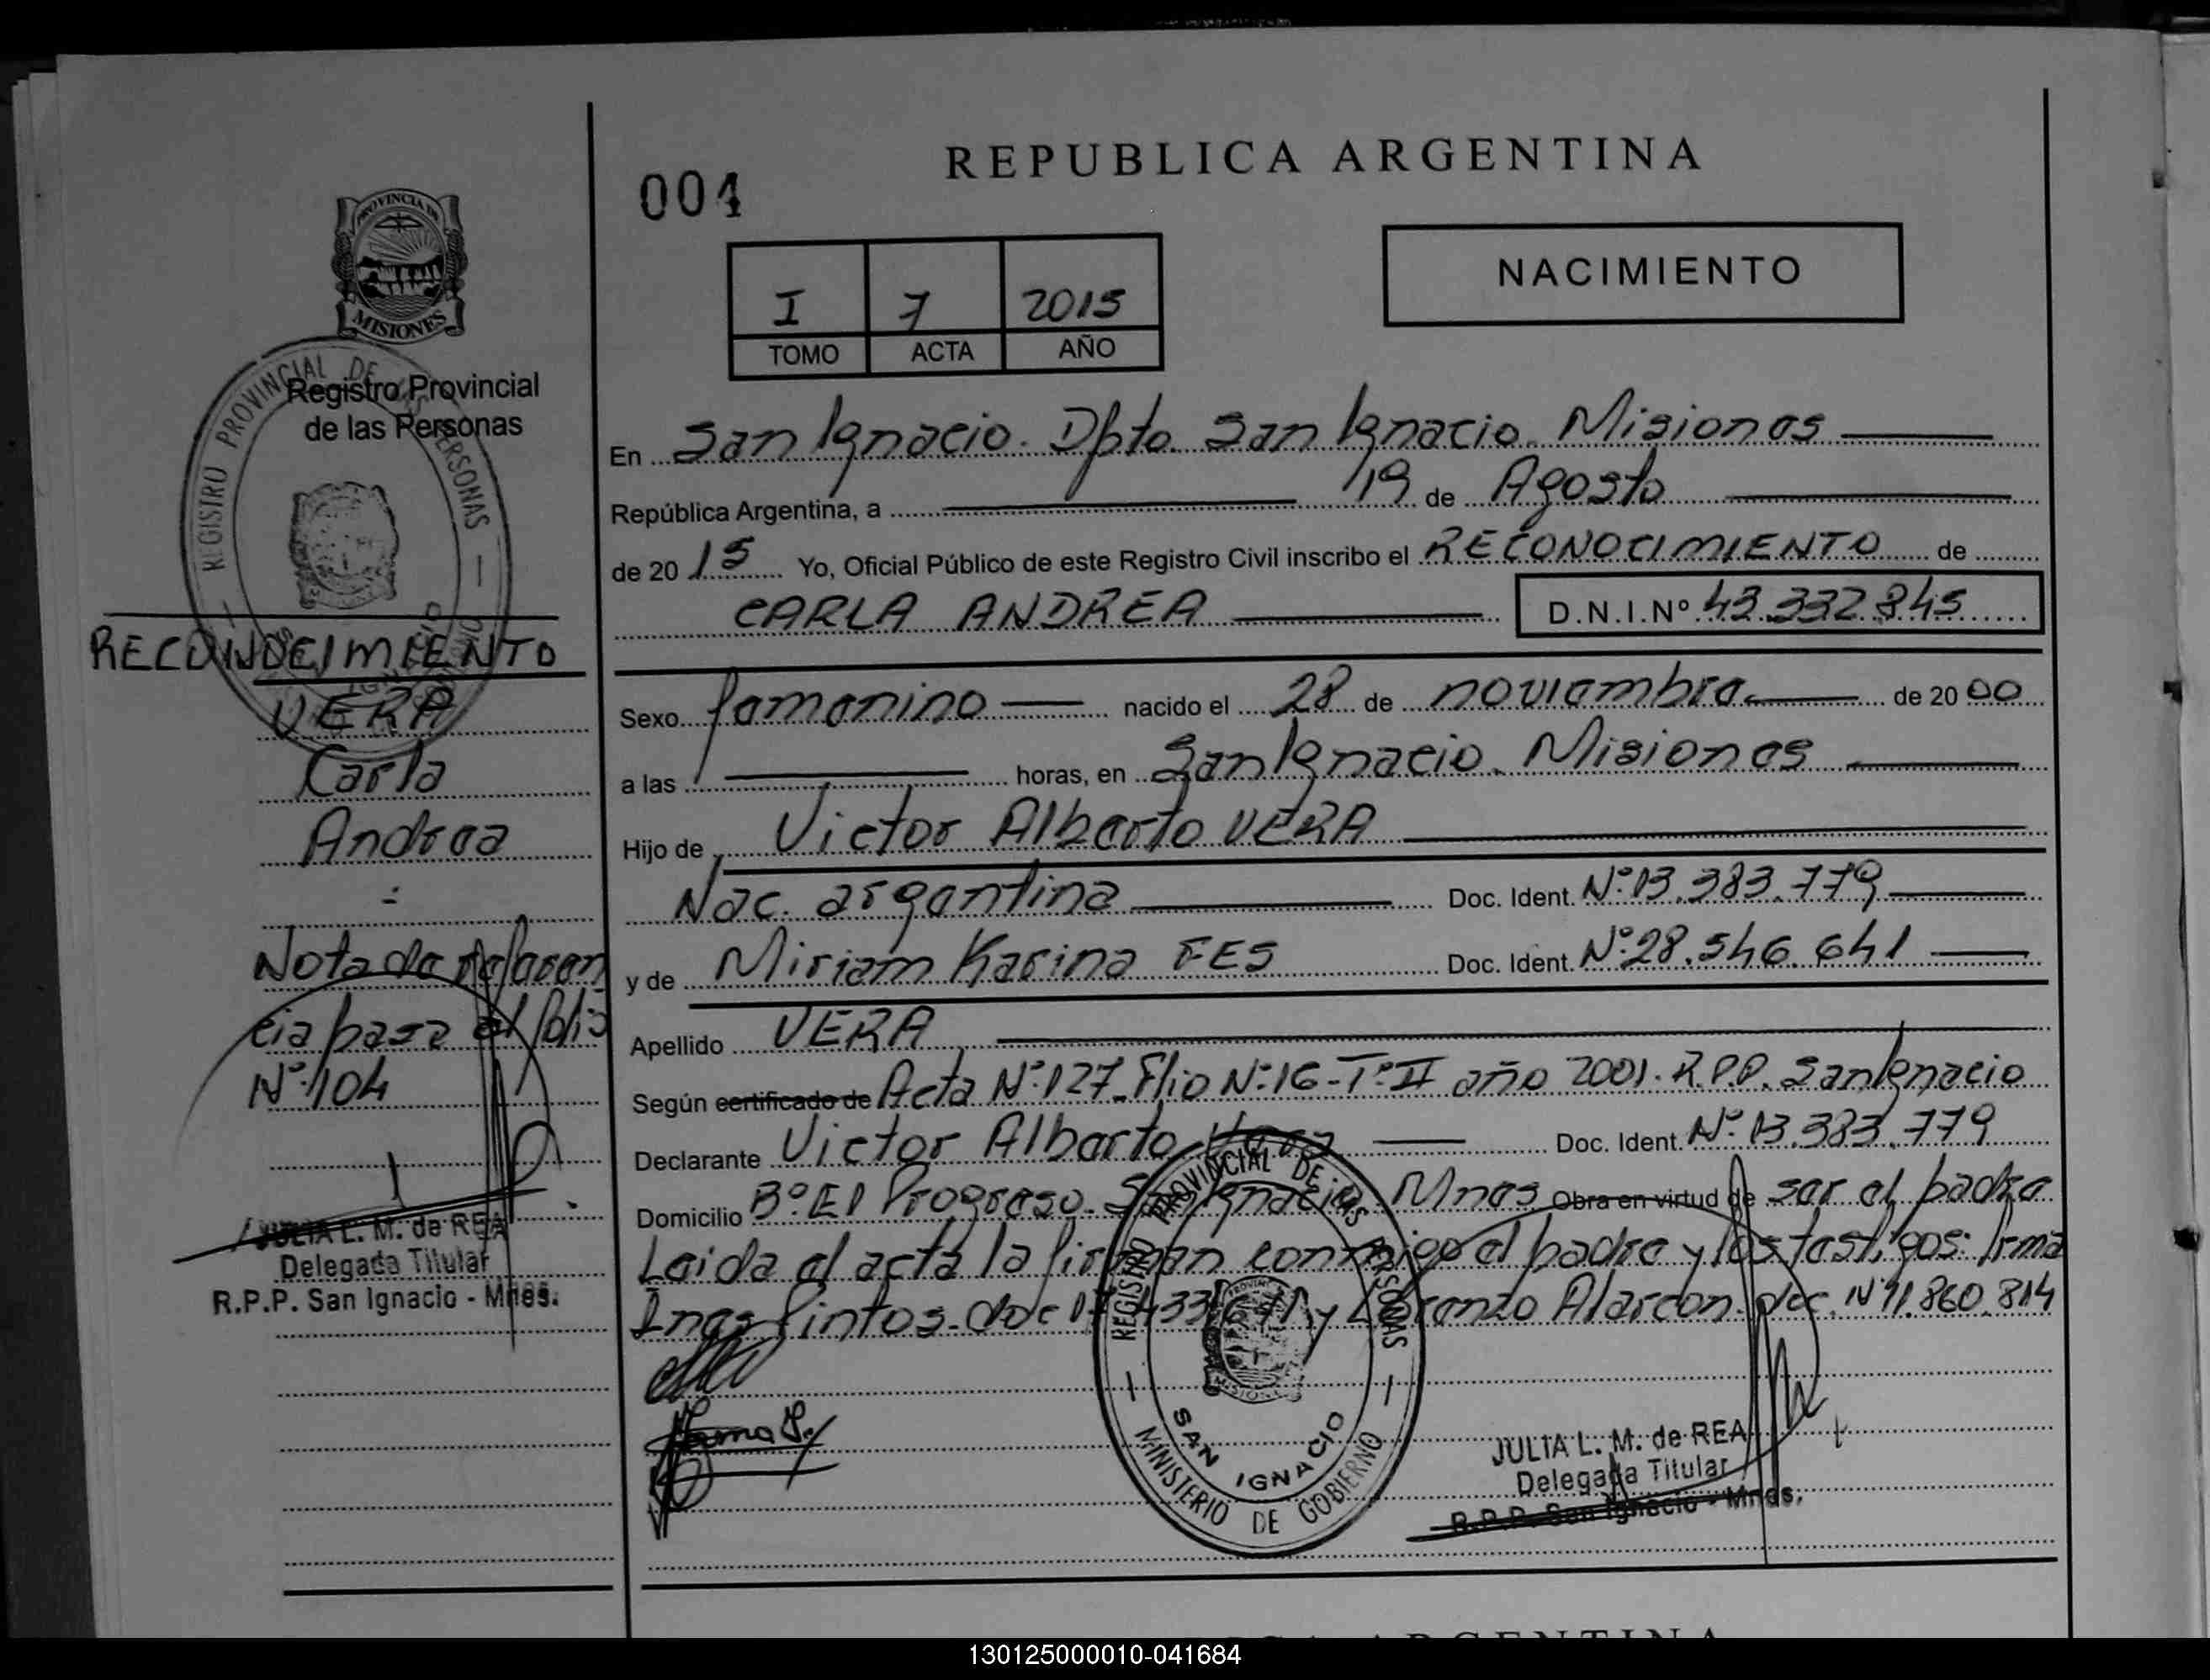 REPUBLICA ARGENTINA
004
NACIMIENTO
I 7 2015
TOMO ACTA AÑO
PROVINCIA DE
MISIONES
Registro Provincial
de las Personas
REGISTRO PROVINCIAL DE PERSONAS
RECONOCIMIENTO
VERA
Carla
Andrea
Nota de referen
cia pasa al folio
Nº 104
JULIA L. M. de REA
Delegada Titular
R.P.P. San Ignacio - Mnes.
En San Ignacio. Dpto. San Ignacio. Misiones
República Argentina, a 19 de Agosto
de 2015 Yo, Oficial Público de este Registro Civil inscribo el RECONOCIMIENTO de
CARLA ANDREA D.N.I.Nº 43.332.845
Sexo femenino nacido el 28 de noviembre de 2000
a las horas, en San Ignacio. Misiones
Hijo de Victor Alberto VERA
Nac. argentina Doc. Ident. Nº 13.383.779
y de Miriam Karina FES Doc. Ident. Nº 28.546.641
Apellido VERA
Según certificado de Acta Nº 127 Flio Nº 16 - Tº II año 2001. R.P.P. San Ignacio
Declarante Victor Alberto Vera Doc. Ident. Nº 13.383.779
Domicilio Bº El Progreso. San Ignacio. Mnes. Obra en virtud de ser el padre
Leida el acta la firman conmigo el padre y los testigos: Irma
Ines Pintos. doc y Lorenzo Alarcon. doc. Nº 11.860.814
REGISTRO PROVINCIAL DE LAS PERSONAS
SAN IGNACIO
MINISTERIO DE GOBIERNO
JULIA L. M. de REA
Delegada Titular
R.P.P. San Ignacio - Mnes.
130125000010-041684